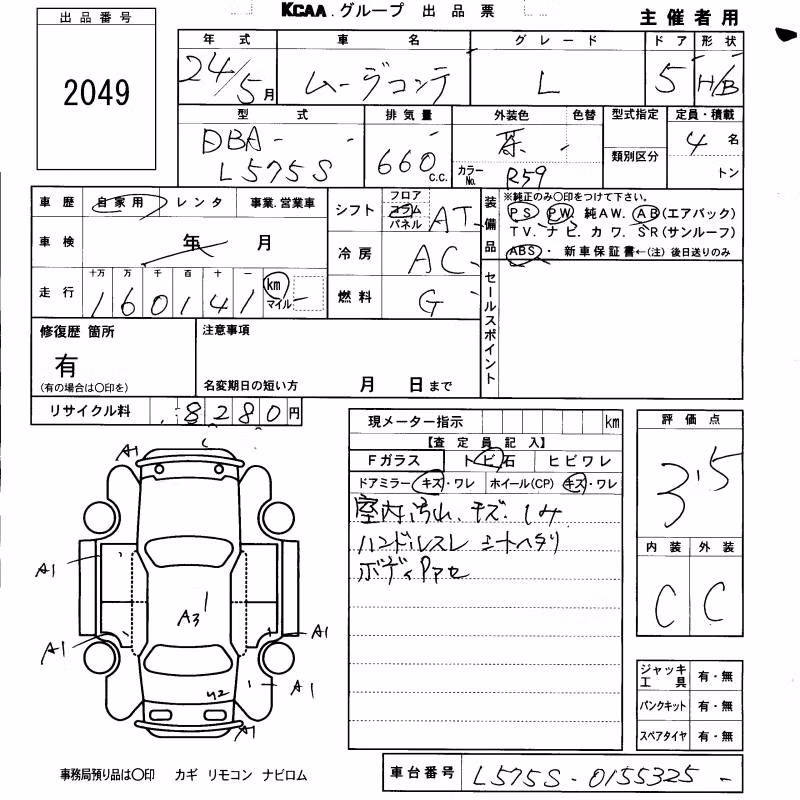 KCAA.グループ 出品票
主催者用
出品番号
2049
年式 車名 グレード ドア 形状
24/5月 ムーヴコンテ L 5 H/B
型式 排気量 外装色 色替 型式指定 定員・積載
DBA-
L575S
660c.c.
茶 -
カラーNo. R59
類別区分
4名
トン
車歴 自家用 レンタ 事業.営業車
車検 年 月
走行 十万 万 千 百 十 一
160141 km マイル
シフト フロア コラム パネル AT
冷房 AC
燃料 G
装備品
※純正のみ〇印をつけて下さい。
PS PW 純AW. AB(エアバック)
TV. ナビ. カワ. SR(サンルーフ)
ABS・ 新車保証書←(注) 後日送りのみ
セールスポイント
修復歴 箇所
有
(有の場合は〇印を)
注意事項
名変期日の短い方 月 日まで
リサイクル料 8280円
現メーター指示 km
【査定員記入】
Fガラス トビ石 ヒビワレ
ドアミラー キズ・ワレ ホイール(CP) キズ・ワレ
室内汚れ、キズ、しみ
ハンドルスレ シートヘタリ
ボディPアセ
評価点
3.5
内装 外装
C C
A1
A1
A3
A1
A1
A1
A1
U2
ジャッキ工具 有・無
パンクキット 有・無
スペアタイヤ 有・無
事務局預り品は〇印 カギ リモコン ナビロム
車台番号 L575S-0155325